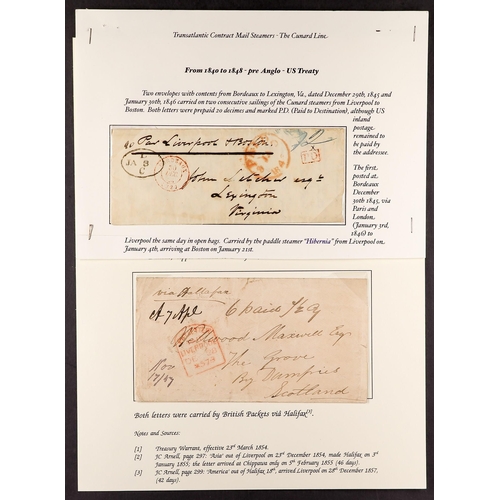 Transatlantic Contract Mail Steamers - The Cunard Line.
From 1840 to 1848 - pre Anglo - US Treaty
Two envelopes with contents from Bordeaux to Lexington, Va., dated December 29th, 1845 and
January 30th, 1846 carried on two consecutive sailings of the Cunard steamers from Liverpool to
Boston. Both letters were prepaid 20 decimes and marked P.D. (Paid to Destination), although US
inland
postage
remained to
be paid by
the
addressee.
The first,
posted at,
Bordeaux
December
30th 1845, via
Paris and
London,
(January 3rd,
1846) to
Per Liverpool & Boston
L
JA 3
C
Esqr
Lexington
Virginia
Liverpool the same day in open bags. Carried by the paddle steamer "Hibernia" from Liverpool on
January 4th, arriving at Boston on January 21st.
via Halifax
6 paid
Wellwood Maxwell Esq
The Grove
By Dumfries
Scotland
Nov
LIVERPOOL
Both letters were carried by British Packets via Halifax[3].
Notes and Sources:
[1] Treasury Warrant, effective 23rd March 1854.
[2] JC Arnell, page 297: 'Asia' out of Liverpool on 23rd December 1854, made Halifax on 3rd
January 1855; the letter arrived at Chippawa only on 5th February 1855 (46 days).
[3] JC Arnell, page 299: 'America' out of Halifax 18th, arrived Liverpool on 28th December 1857,
(42 days).